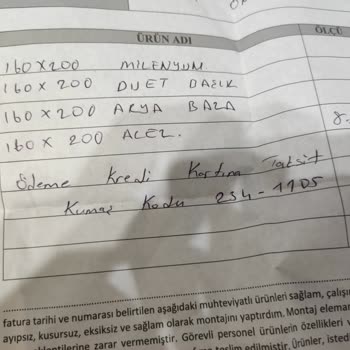 ÜRÜN ADI
ÖLÇÜ
160x200 MİLENYUM
160x 200 DUET BAZLK
160 x 200 ARYA BAZA
160 x 200 ALEZ.
Ödeme Kredi Kartına Taksit
Kumaş Kodu 234-1705
fatura tarihi ve numarası belirtilen aşağıdaki muhteviyatlı ürünleri sağlam, çalışır
ayıpsız, kusursuz, eksiksiz ve sağlam olarak montajını yaptırdım. Montaj eleman
eklentilerine zarar vermemiştir. Görevli personel ürünlerin özellikleri v
teslim edilmiştir. Ürünler, isted